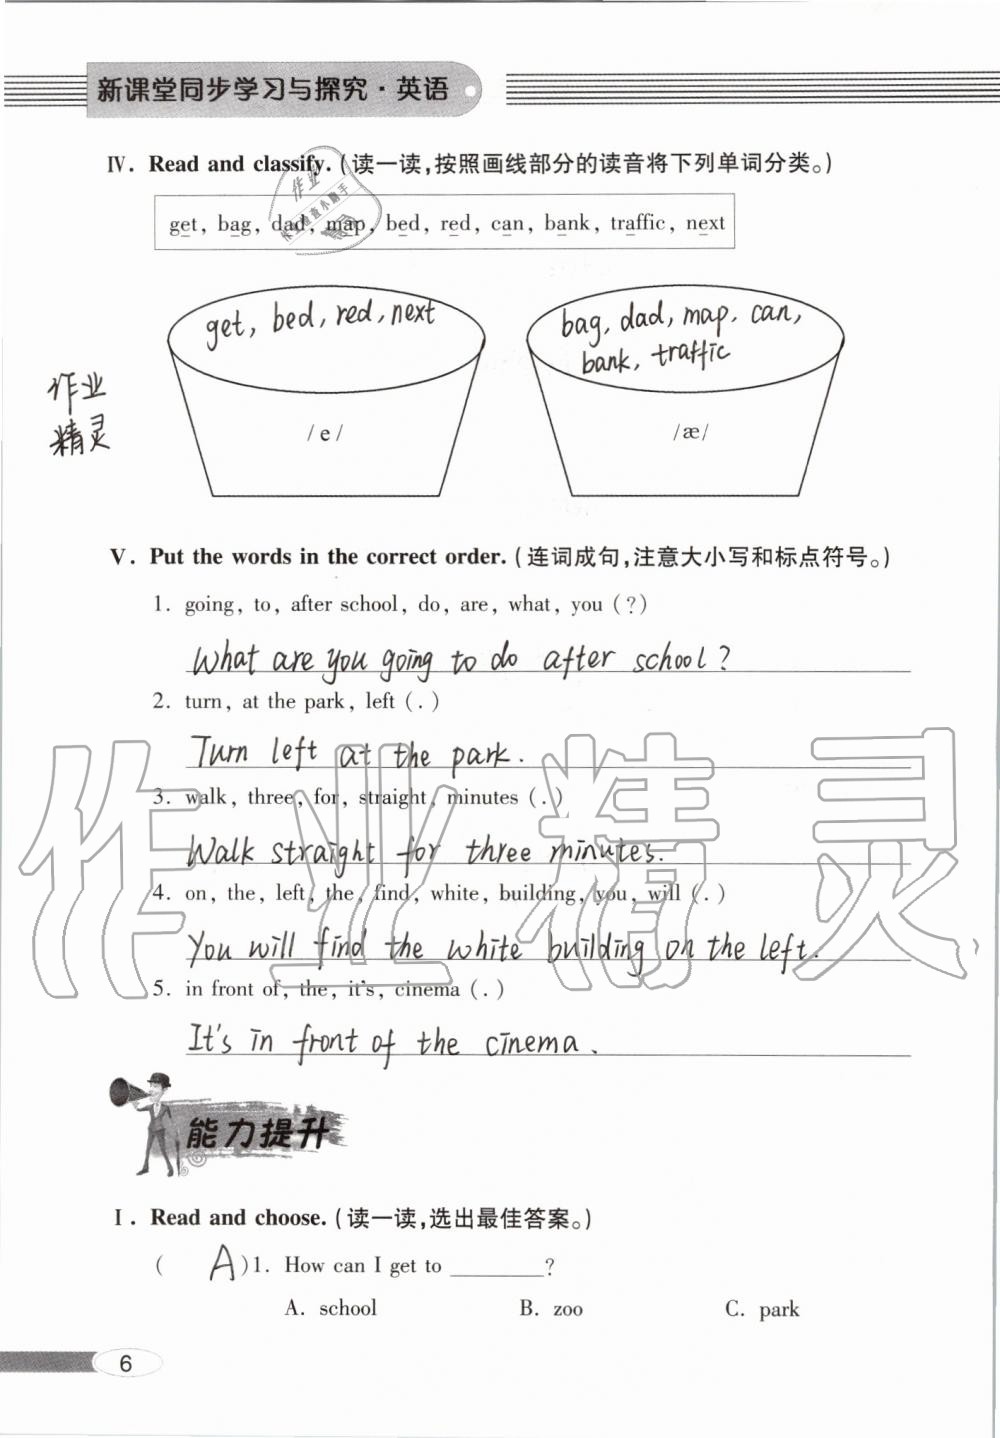 新课堂同步学习与探究·英语
Ⅳ. Read and classify. (读一读,按照画线部分的读音将下列单词分类。)
get, bag, dad, map, bed, red, can, bank, traffic, next
get, bed, red, next
bag, dad, map, can,
bank, traffic
/e/
/æ/
作业
精灵
Ⅴ. Put the words in the correct order. (连词成句,注意大小写和标点符号。)
1. going, to, after school, do, are, what, you (?)
What are you going to do after school?
2. turn, at the park, left (.)
Turn left at the park.
3. walk, three, for, straight, minutes (.)
Walk straight for three minutes.
4. on, the, left, the, find, white, building, you, will (.)
You will find the white building on the left.
5. in front of, the, it's, cinema (.)
It's in front of the cinema.
作业精灵
能力提升
Ⅰ. Read and choose. (读一读,选出最佳答案。)
( A )1. How can I get to ________?
A. school B. zoo C. park
6